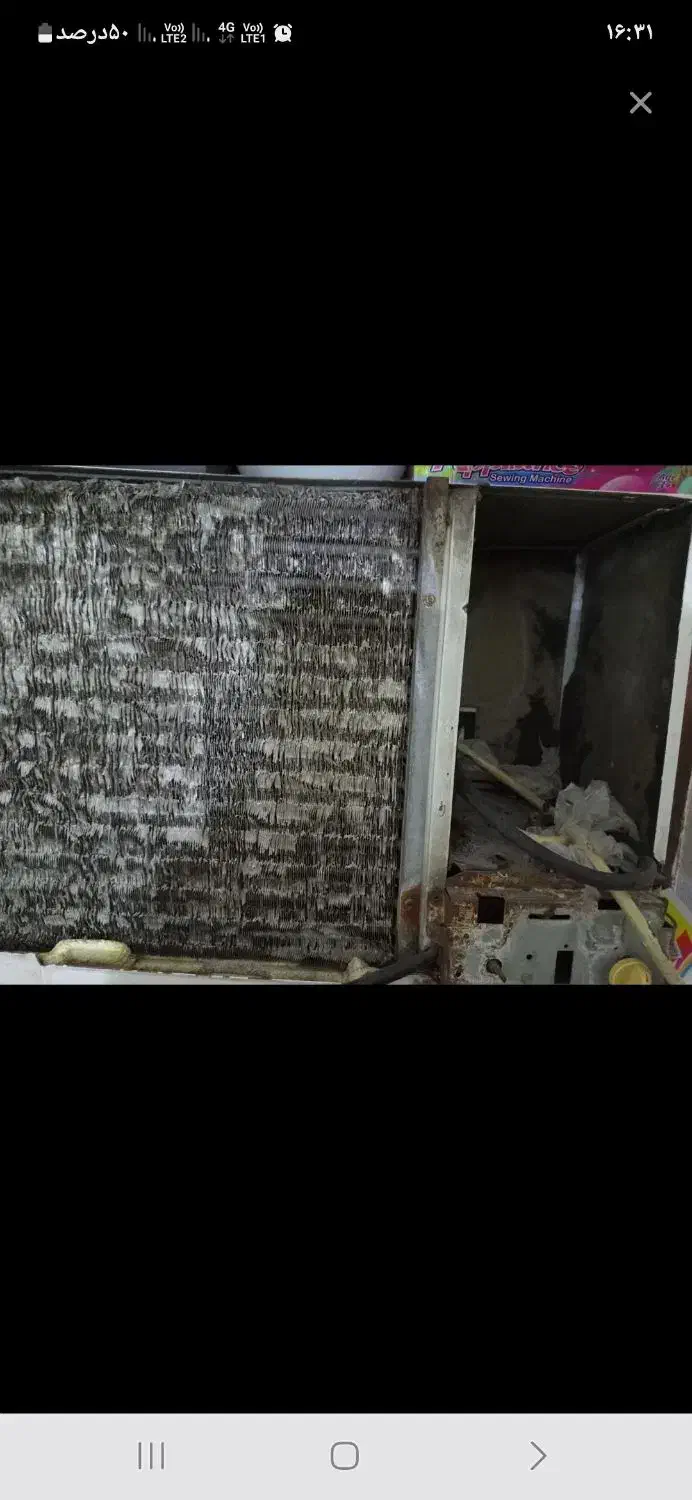 ۵۰درصد Vo) LTE2 4G Vo) LTE1 ۱۶:۳۱
Sewing Machine